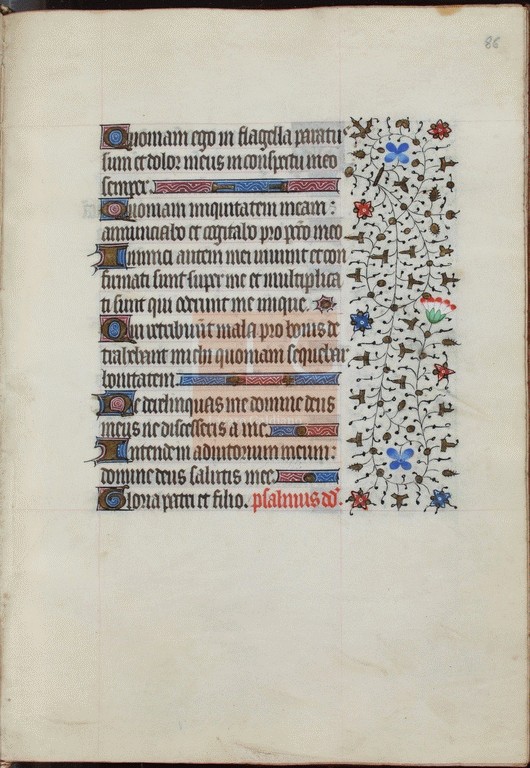 86
Quoniam ego in flagella paratus
sum et dolor meus in conspectu meo
semper.
Quoniam iniquitatem meam:
annunciabo et cogitabo pro pctō meo
Inimici autem mei vivunt et con
firmati sunt super me et multiplica
ti sunt qui oderunt me inique.
Qui retribuūt mala pro bonis de
trahebant michi quoniam sequebar
bonitatem.
Ne derelinquas me domine deus
meus ne discesseris a me.
Intende in adiutorium meum:
domine deus salutis mee.
Gloria patri et filio. psalmus dd̄.